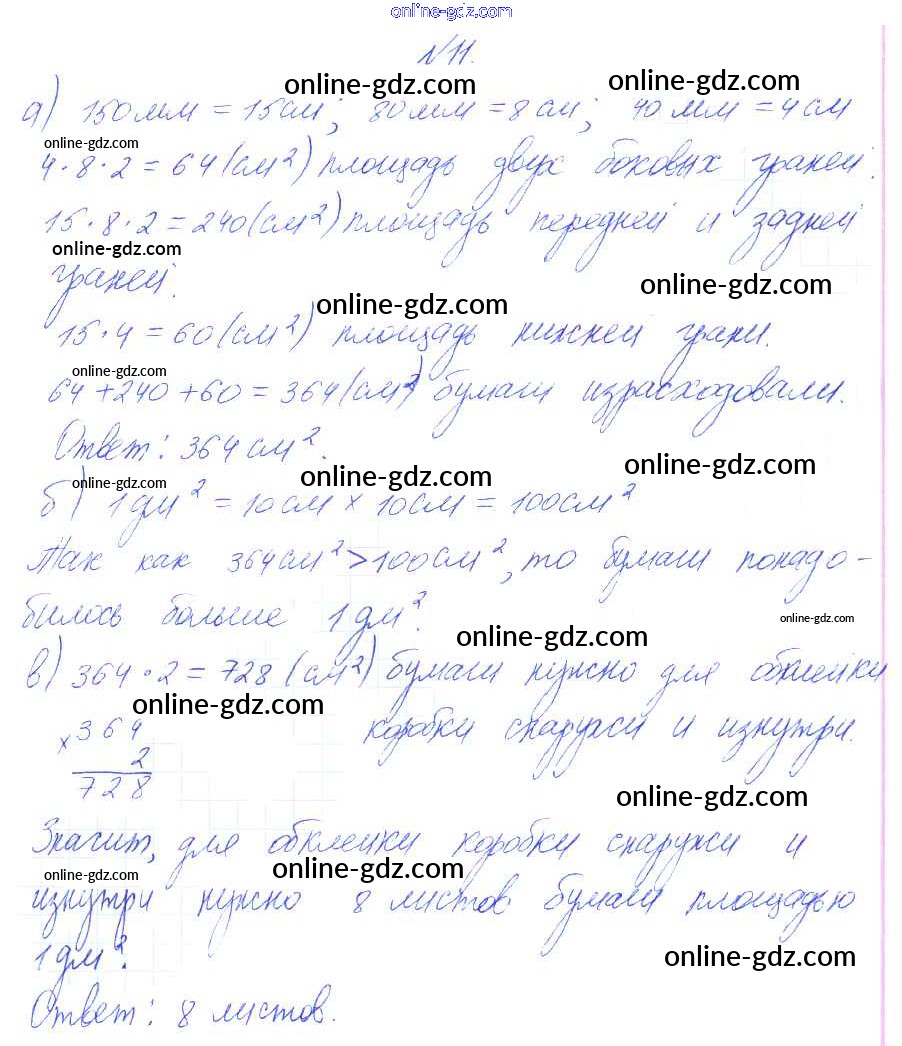 online-gdz.com
№11.
online-gdz.com online-gdz.com
а) 150мм = 15см; 80мм = 8см; 40мм = 4см
online-gdz.com
4·8·2 = 64(см²) площадь двух боковых граней.
15·8·2 = 240(см²) площадь передней и задней
online-gdz.com
граней.
online-gdz.com online-gdz.com
15·4 = 60(см²) площадь нижней грани.
online-gdz.com
64+240+60 = 364(см²) бумаги израсходовали.
Ответ: 364см².
online-gdz.com online-gdz.com online-gdz.com
б) 1дм² = 10см × 10см = 100см²
Так как 364см²>100см², то бумаги понадо-
билось больше 1дм².
online-gdz.com
online-gdz.com
в) 364·2 = 728(см²) бумаги нужно для обклейки
online-gdz.com
×364 коробки снаружи и изнутри.
2
728
online-gdz.com
Значит, для обклейки коробки снаружи и
online-gdz.com
изнутри нужно 8 листов бумаги площадью
1дм².
online-gdz.com
Ответ: 8 листов.